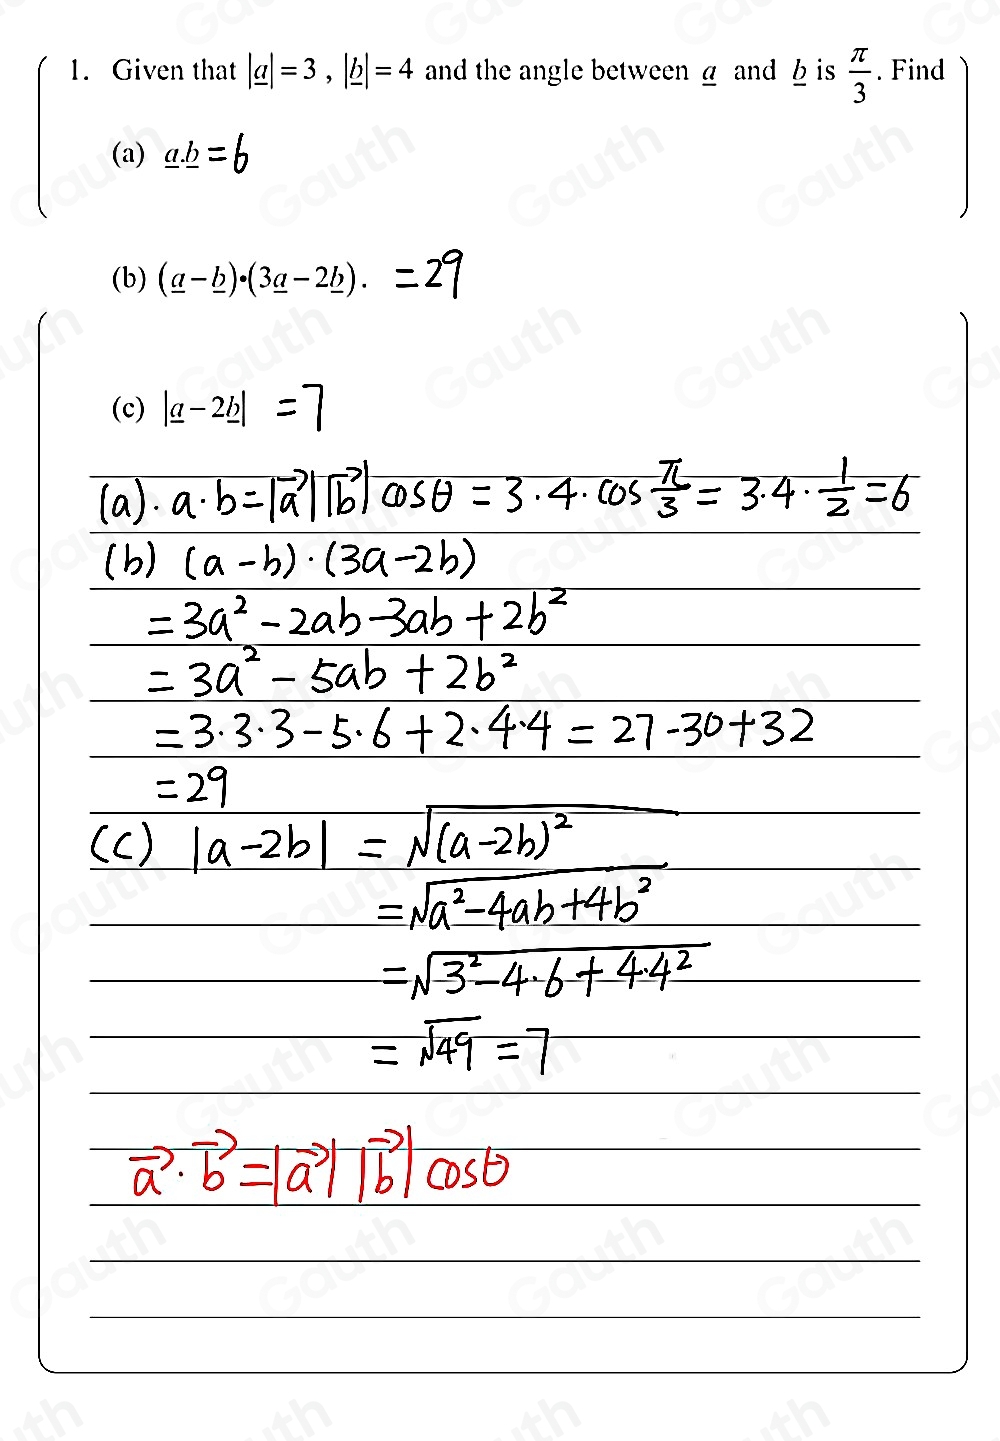 1. Given that |a| = 3 , |b| = 4 and the angle between a and b is π/3. Find
(a) a.b = 6
(b) (a − b)•(3a − 2b). = 29
(c) |a − 2b| = 7
(a). a·b = |a⃗| |b⃗| cosθ = 3·4·cos π/3 = 3·4·1/2 = 6
(b) (a - b)·(3a - 2b)
= 3a² - 2ab - 3ab + 2b²
= 3a² - 5ab + 2b²
= 3·3·3 - 5·6 + 2·4·4 = 27 - 30 + 32
= 29
(c) |a - 2b| = √(a - 2b)²
= √a² - 4ab + 4b²
= √3² - 4·6 + 4·4²
= √49 = 7
a⃗·b⃗ = |a⃗| |b⃗| cosθ
Gauth